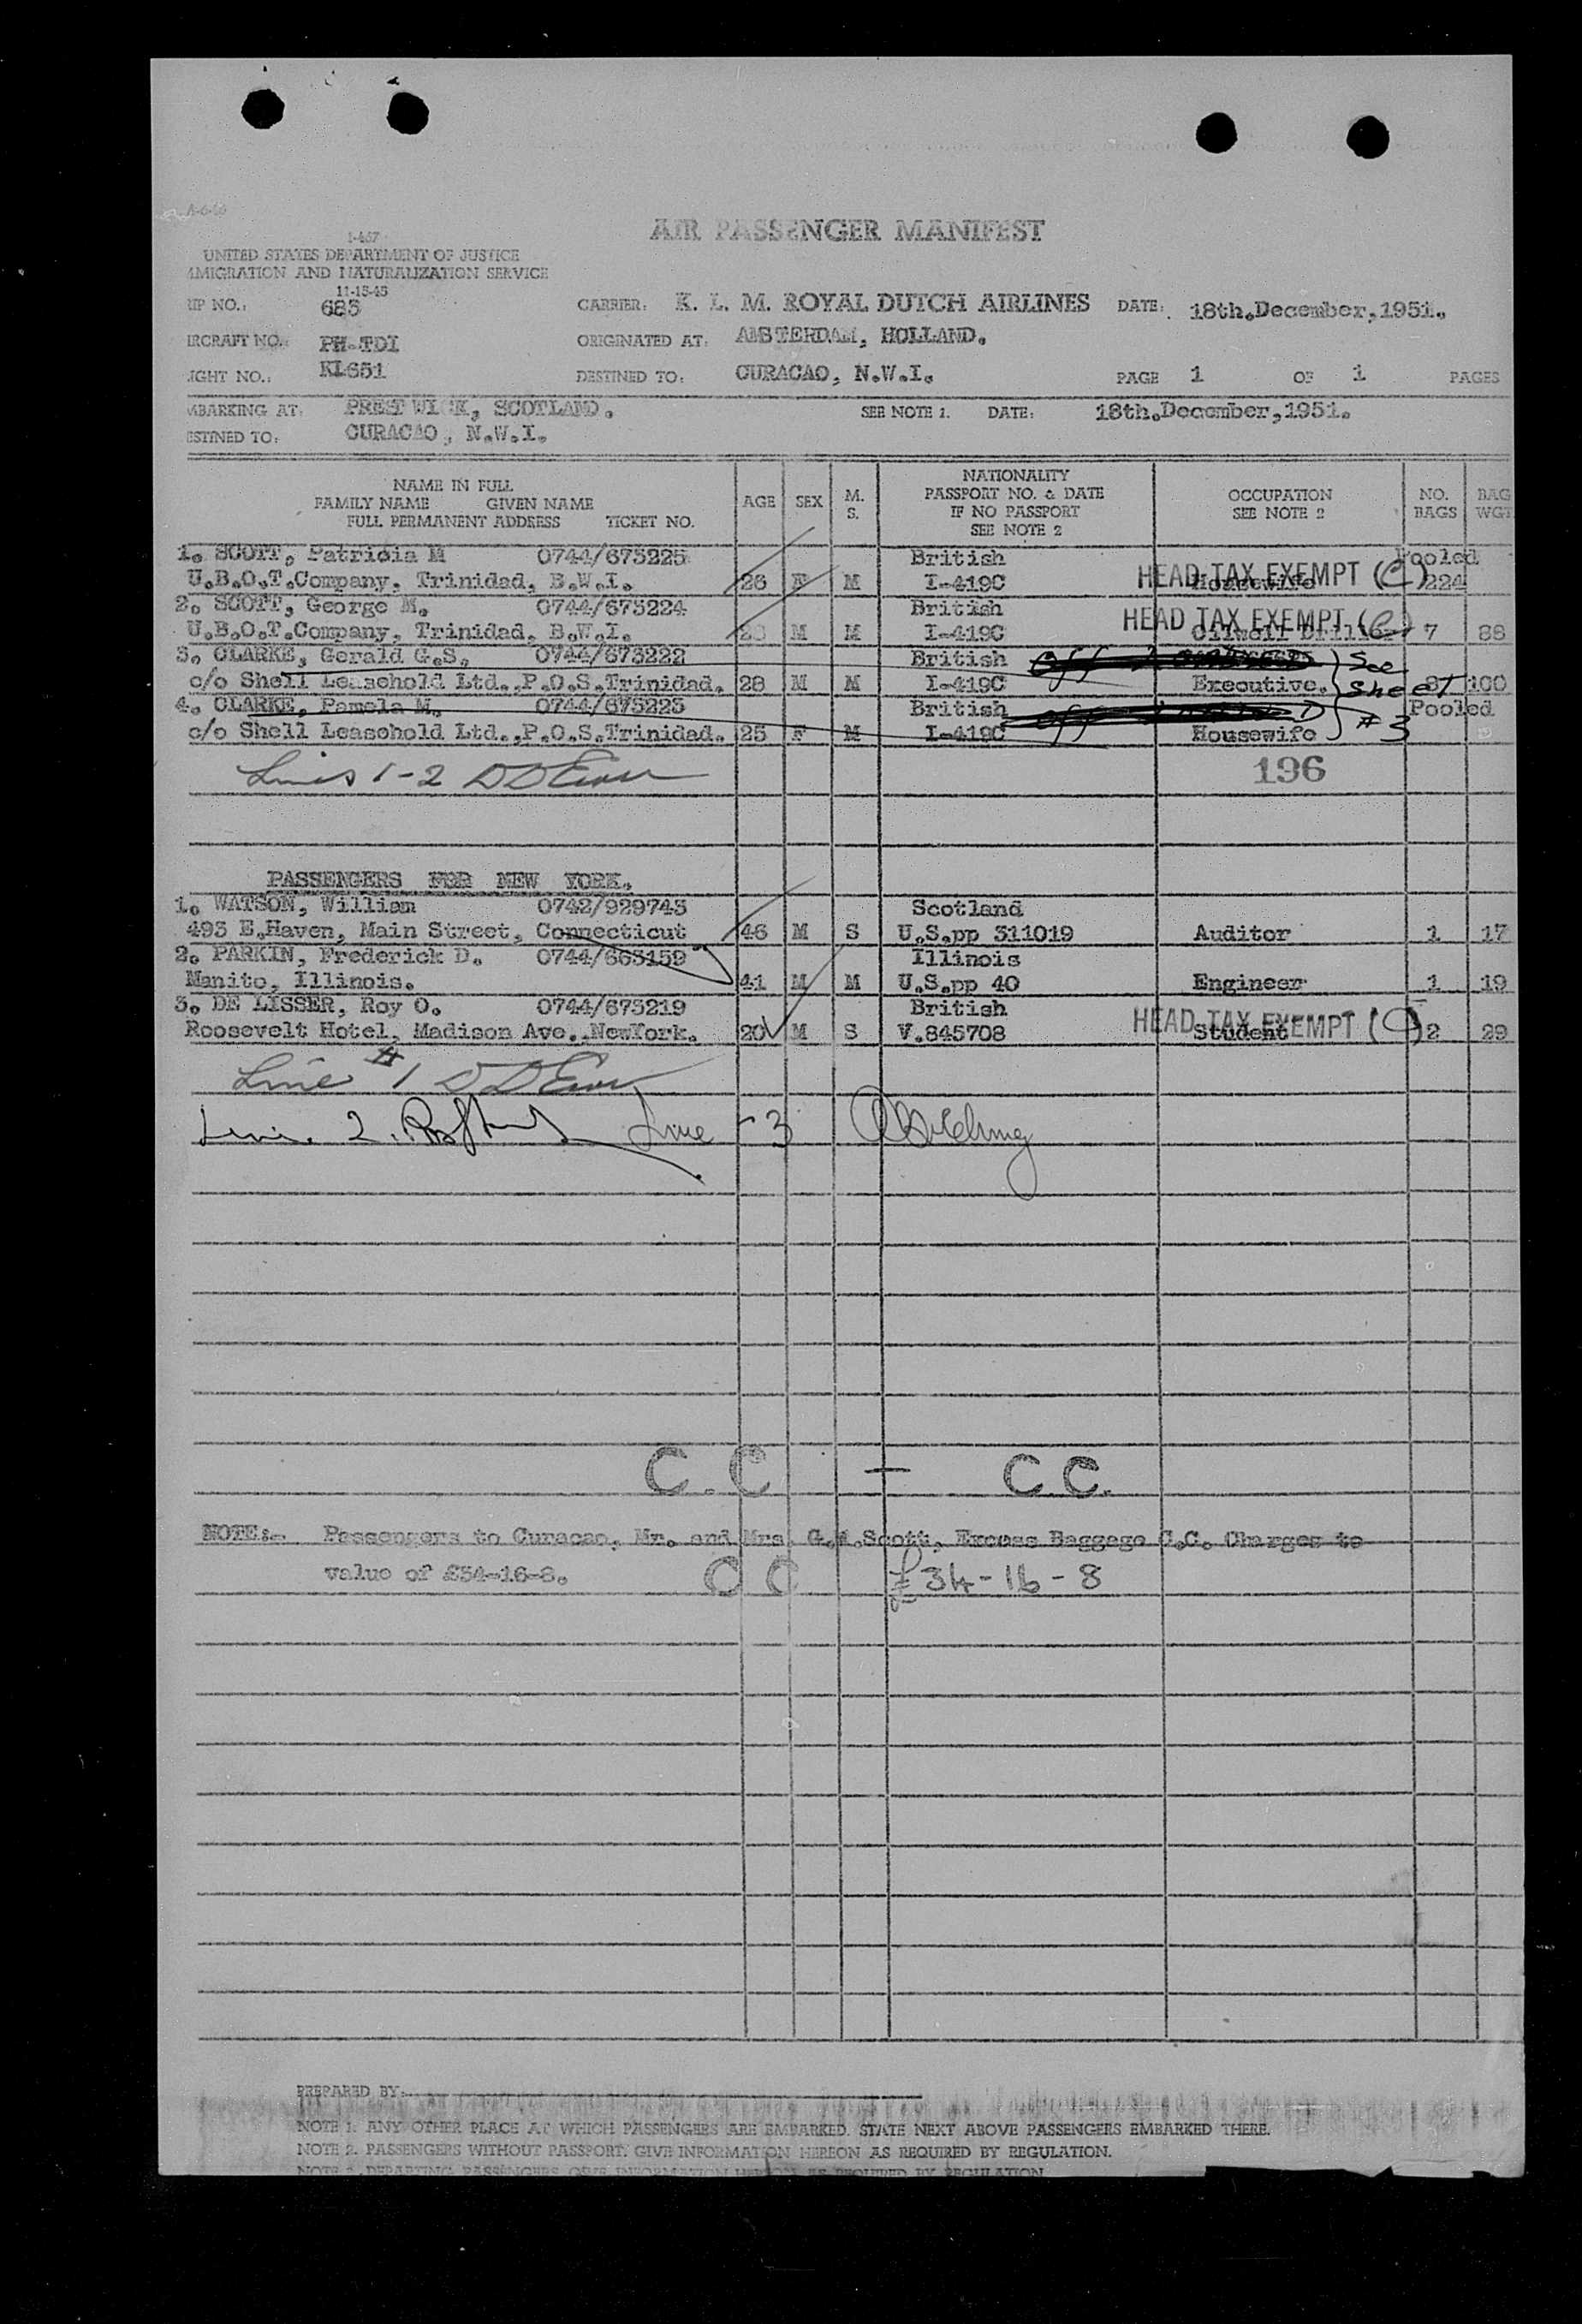 A-6-46
AIR PASSENGER MANIFEST
I-467
UNITED STATES DEPARTMENT OF JUSTICE
IMMIGRATION AND NATURALIZATION SERVICE
11-15-45
RIP NO.: 683 CARRIER: K. L. M. ROYAL DUTCH AIRLINES DATE: 18th.December,1951.
IRCRAFT NO.: PH-TDI ORIGINATED AT: AMSTERDAM, HOLLAND.
IGHT NO.: KL651 DESTINED TO: CURACAO, N.W.I. PAGE 1 OF 1 PAGES
MBARKING AT: PRESTWICK, SCOTLAND. SEE NOTE 1. DATE: 18th.December,1951.
ESTINED TO: CURACAO, N.W.I.
NAME IN FULL
FAMILY NAME GIVEN NAME
FULL PERMANENT ADDRESS TICKET NO.
AGE SEX M. S.
NATIONALITY
PASSPORT NO. & DATE
IF NO PASSPORT
SEE NOTE 2
OCCUPATION
SEE NOTE 2
NO. BAGS
BAG WGT
1. SCOTT, Patricia M 0744/673225 British Pooled
U.B.O.T.Company, Trinidad, B.W.I. 26 F M I-419C Housewife HEAD TAX EXEMPT (C) 224
2. SCOTT, George M. 0744/673224 British
U.B.O.T.Company, Trinidad, B.W.I. M M I-419C Oilwell Driller HEAD TAX EXEMPT (C) 7 88
3. CLARKE, Gerald G.S. 0744/673222 British See
c/o Shell Leasehold Ltd.,P.O.S.Trinidad. 28 M M I-419C Executive. Sheet 100
4. CLARKE, Pamela M. 0744/673223 British Pooled
c/o Shell Leasehold Ltd.,P.O.S.Trinidad. 25 F M I-419C Housewife #3
Lines 1-2
196
PASSENGERS FOR NEW YORK.
1. WATSON, William 0742/929743 Scotland
493 E.Haven, Main Street, Connecticut 46 M S U.S.pp 311019 Auditor 1 17
2. PARKIN, Frederick D. 0744/663159 Illinois
Manito, Illinois. 41 M M U.S.pp 40 Engineer 1 19
3. DE LISSER, Roy O. 0744/673219 British
Roosevelt Hotel, Madison Ave.,NewYork. 20 M S V.845708 Student HEAD TAX EXEMPT (C) 2 29
Line #1
Line 2. Line - 3
C.C - C.C.
NOTE:- Passengers to Curacao, Mr. and Mrs. G.M.Scott, Excess Baggage C.C. Charges to
value of £34-16-8. CC £34-16-8
PREPARED BY:
NOTE 1. ANY OTHER PLACE AT WHICH PASSENGERS ARE EMBARKED. STATE NEXT ABOVE PASSENGERS EMBARKED THERE.
NOTE 2. PASSENGERS WITHOUT PASSPORT. GIVE INFORMATION HEREON AS REQUIRED BY REGULATION.
NOTE 3. DEPARTING PASSENGERS GIVE INFORMATION HEREON AS REQUIRED BY REGULATION